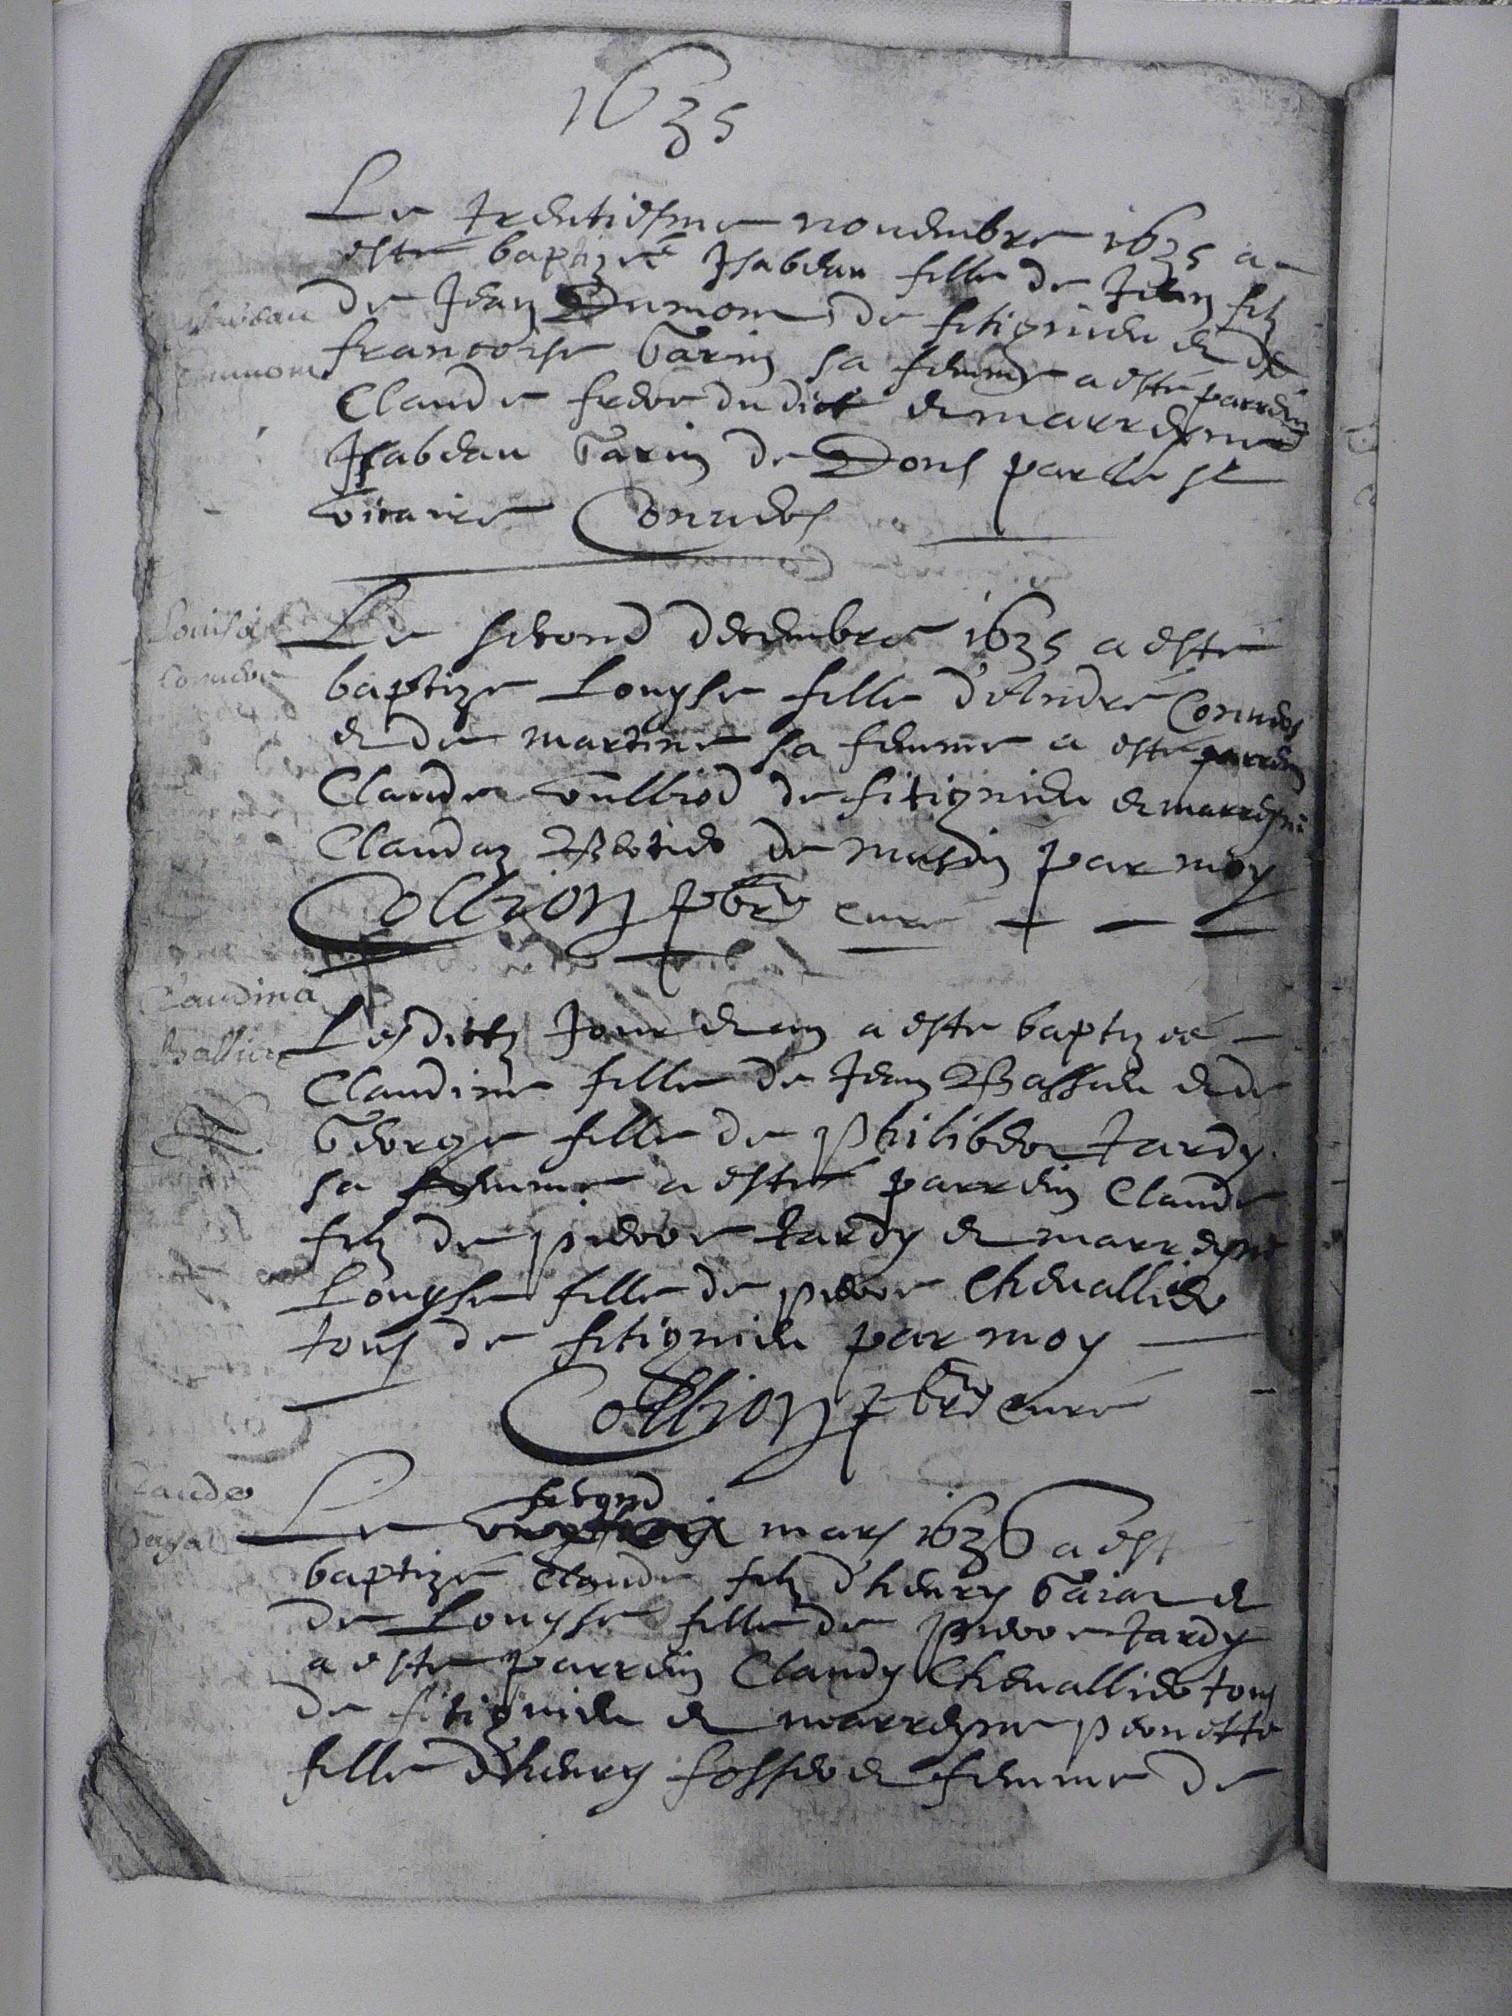 1635
Le trentiesme nouembre 1635 a
este baptizée Isabeau fille de Jean filz
de Jean Dumont de fitignieu et de
francoise Garin sa femme a esté parrein
Claude frere du dict et marreyne
Isabeau Garin de Dons par le Sr
vicaire Cornules
Louise
Le second decembre 1635 a esté
baptize Louyse fille d'André
et de martine sa femme a esté parrein
Claude Vulliod de fitignieu et marreyne
Claudaz de par moy
Collion pbre curé
Claudina
Lesdictz Jour et an a este baptizeé
Claudine fille de Jean Bassieu et de
George fille de philiber tardy
sa femme a esté parrein Claude
filz de pierre tardy et marreyne
Louyse fille de pierre Cheuallier
tous de fitignieu par moy
Collion pbre curé
Claude
second
Le mars 1636 a est
baptizé Claude filz d'henry et
de Louyse fille de pierre tardy
a este parrein Claudy Cheuallier tous
de fitignieu et marreyne pernette
fille d'henry et femme de